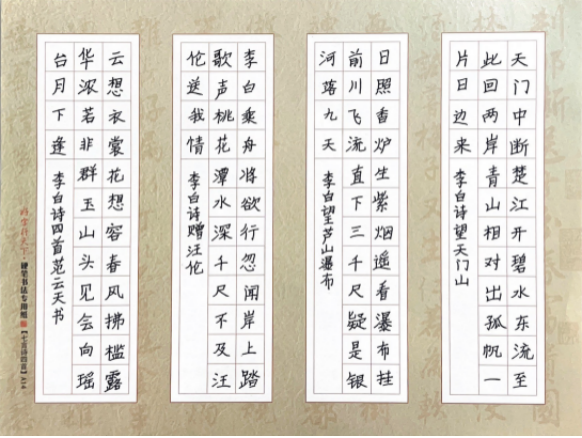 天门中断楚江开碧水东流至
此回两岸青山相对出孤帆一
片日边来 李白诗望天门山
日照香炉生紫烟遥看瀑布挂
前川飞流直下三千尺疑是银
河落九天 李白望芦山瀑布
李白乘舟将欲行忽闻岸上踏
歌声桃花潭水深千尺不及汪
伦送我情 李白诗赠汪伦
云想衣裳花想容春风拂槛露
华浓若非群玉山头见会向瑶
台月下逢 李白诗四首范云天书
硬笔书法专用纸 【七言诗四首】